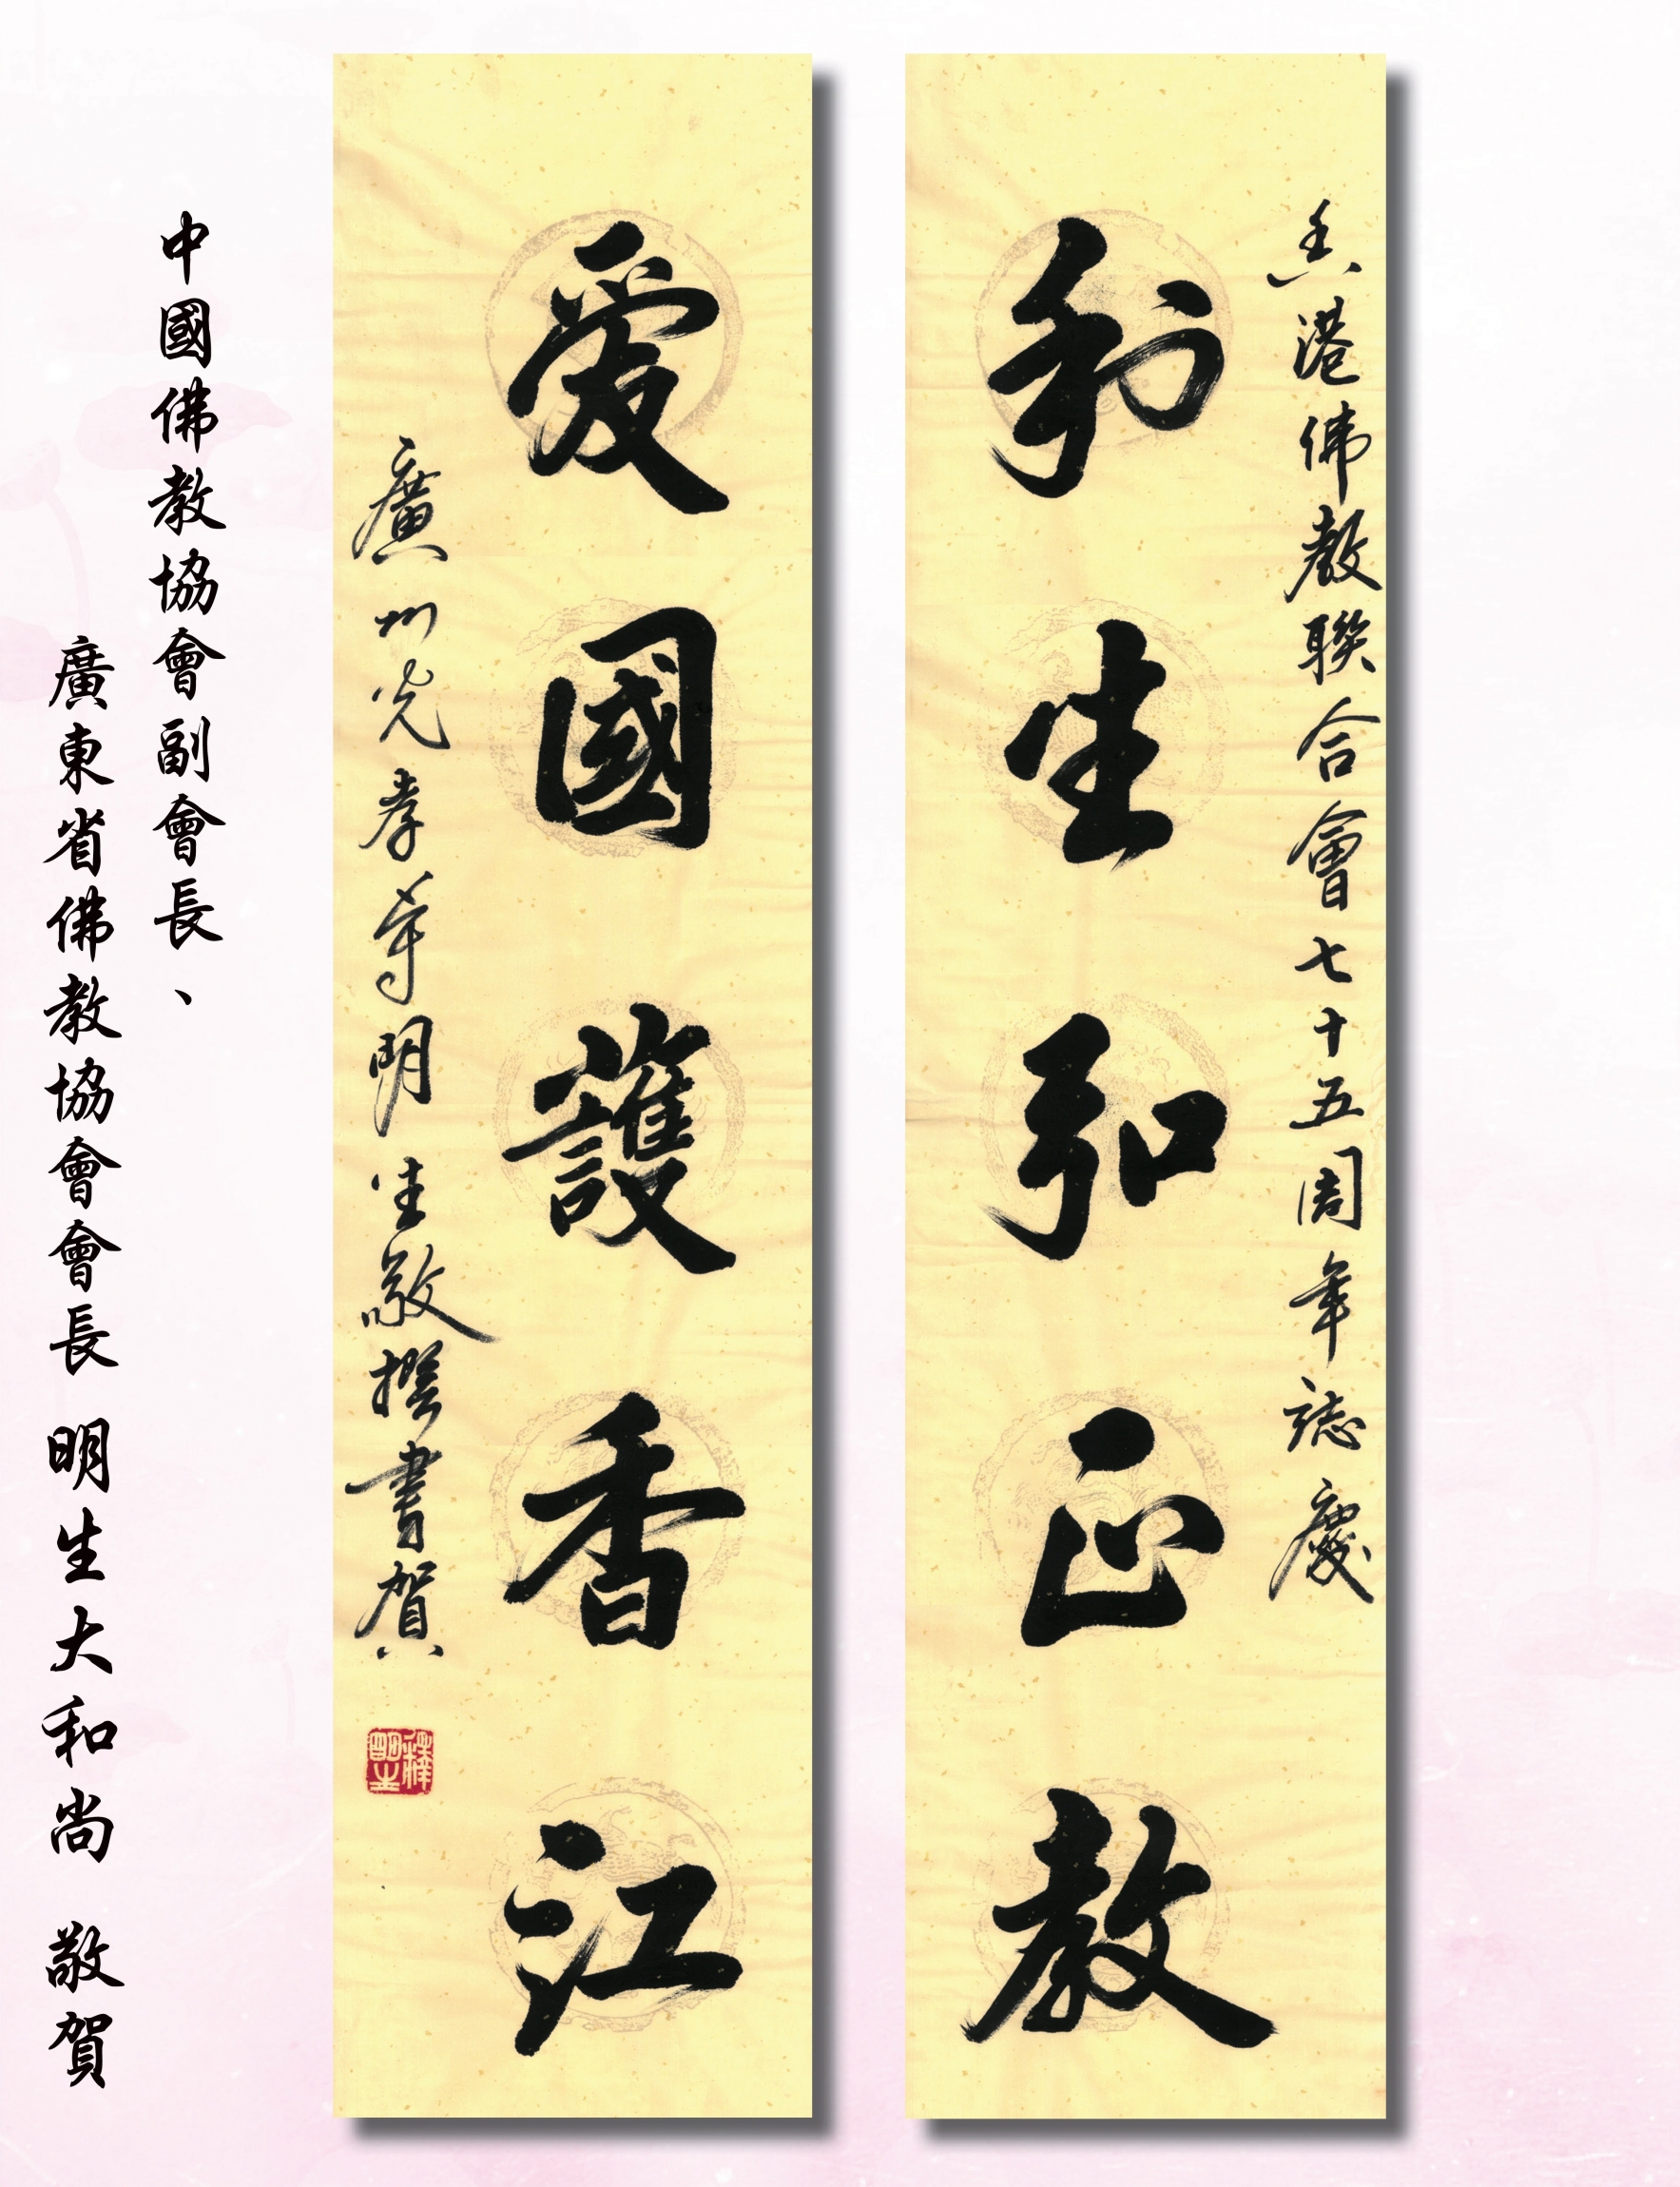 香港佛教聯合會七十五周年誌慶
利生弘正教
愛國護香江
廣州光孝寺明生敬撰書賀
釋明生
中國佛教協會副會長、
廣東省佛教協會會長 明生大和尚 敬賀